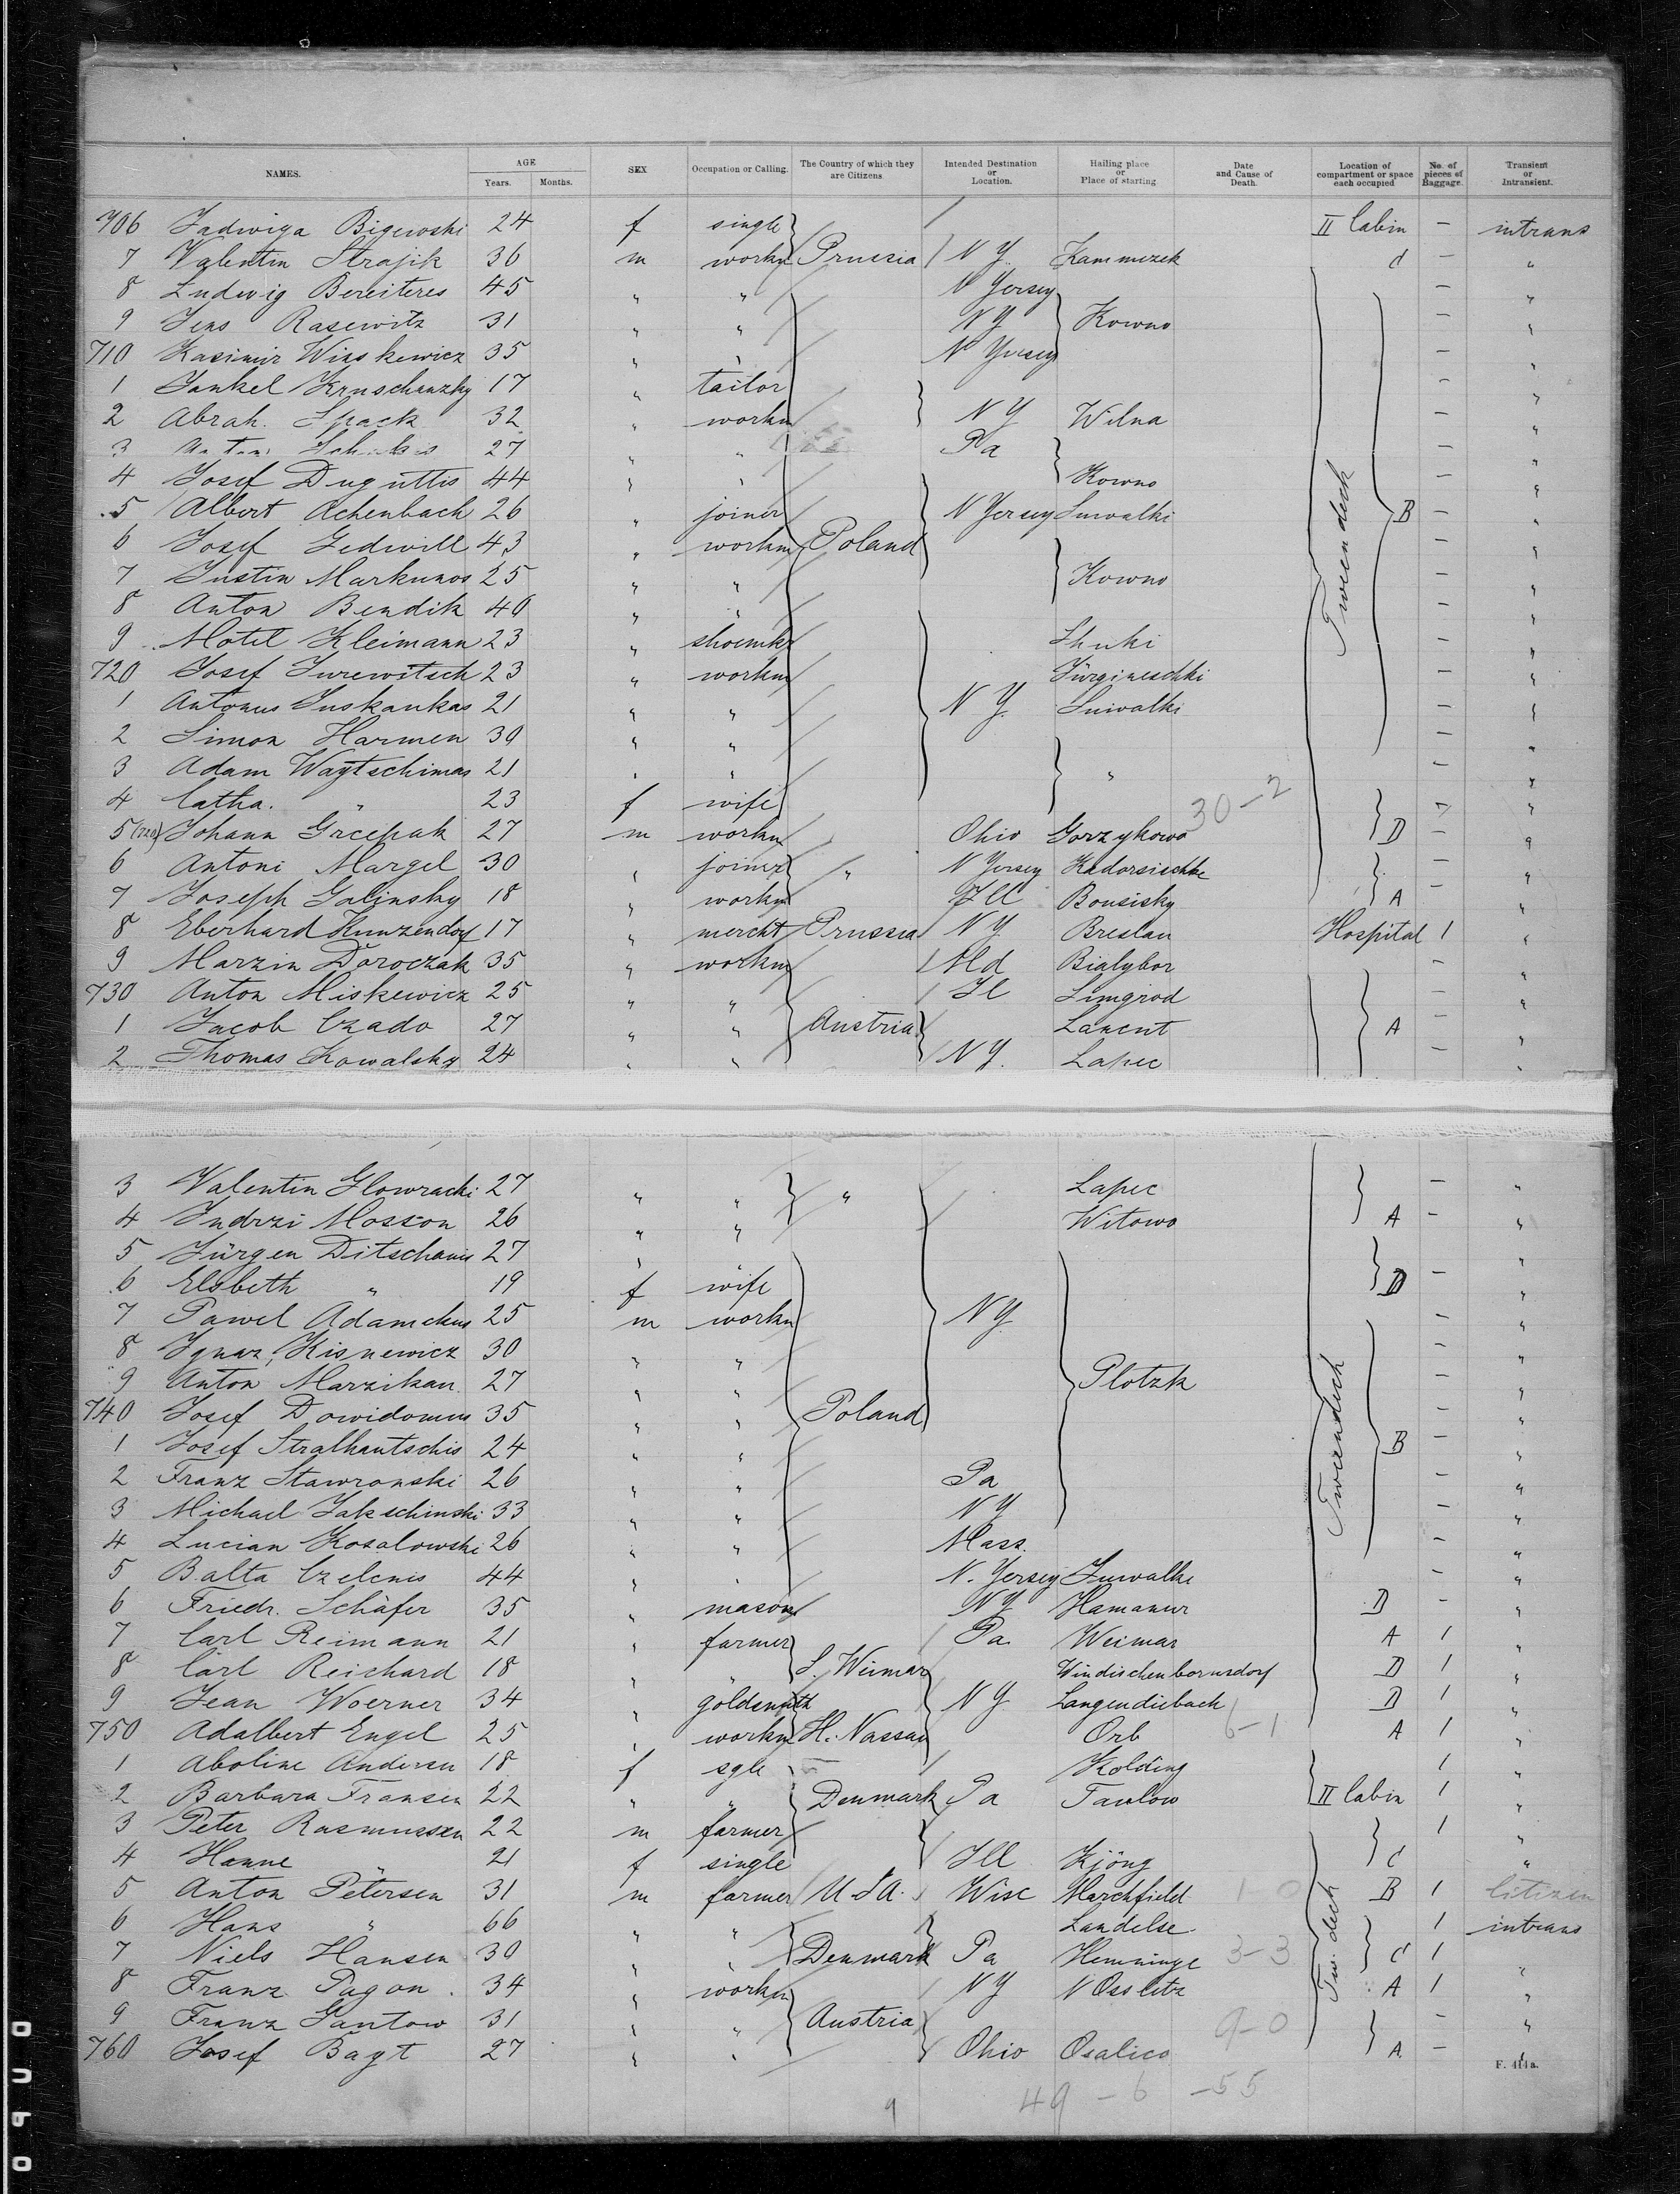 NAMES. AGE SEX Occupation or Calling. The Country of which they are Citizens Intended Destination or Location. Hailing place or Place of starting. Date and Cause of Death. Location of compartment or space each occupied No. of pieces of Baggage. Transient or Intransient.
Years. Months.
706 Jadwiga Bigewski 24 f single II Cabin — intrans
7 Valentin Strajik 36 m workm Prussia N Y. Kammezek C — "
8 Ludwig Bereiteres 45 " " N Yersey — "
9 Jens Rasewitz 31 " " N Y Kowno — "
710 Kasimir Wisskewicz 35 " " N Yersey — "
1 Jankel Kruschanzky 17 " tailor — "
2 Abrah. Spack 32 " workm N Y Wilna — "
3 27 " " Pa — "
4 Josef Duguttis 44 " " Kowno — "
5 Albert Achenbach 26 " joiner N Yersey Suwalki B — "
6 Josef Gedwill 43 " workm Poland Tweendeck — "
7 Justin Markunos 25 " " Kowno — "
8 Anton Bendik 40 " " — "
9 Motel Kleimann 23 " shoemkr — "
720 Josef Jurewitsch 23 " workm Jürgineschki — "
1 Antonus Juskaukas 21 " " N Y. Suwalki — "
2 Simon Harmen 30 " " — "
3 Adam Waytschimas 21 " " " — "
4 Catha. " 23 f wife 30-2 — "
5 Johann Grcepak 27 m workm Ohio Gorzykowo D — "
6 Antoni Margel 30 " joiner " N Yersey Kadorsischke — "
7 Joseph Galinsky 18 " workm Ill Bousisky A — "
8 Eberhard Kunzendorf 17 " mercht Prussia N Y Breslau Hospital 1 "
9 Marzin Doroczak 35 " workm Md Bialybor — "
730 Anton Miskewicz 25 " " Il Limgrod — "
1 Jacob Czado 27 " " Austria Lancut A — "
2 Thomas Kowalsky 24 " " N Y. Lapec — "
3 Valentin Glowracki 27 " " " Lapec — "
4 Indrzi Mosson 26 " " Witowo A — "
5 Jürgen Ditschaun 27 " " "
6 Elsbeth " 19 f wife D — "
7 Pawel Adamckus 25 m workm N Y. — "
8 Ignaz Kisnewicz 30 " " — "
9 Anton Marzikan 27 " " Plotzk — "
740 Josef Dowidomus 35 " " Poland Tweendeck — "
1 Josef Stralhautschis 24 " " B — "
2 Franz Stawronski 26 " " Pa — "
3 Michael Jakschinski 33 " " N Y — "
4 Lucian Kosalowski 26 " " Mass. — "
5 Balta Czelenis 44 " " N. Yersey Suwalki — "
6 Friedr. Schäfer 35 " mason N Y Hamanur D — "
7 Carl Reimann 21 " farmer Pa Weimar A 1 "
8 Carl Reichard 18 " " S. Weimar Windischenbernsdorf D 1 "
9 Jean Woerner 34 " goldsmith N Y. Langendiebach D 1 "
750 Adalbert Engel 25 " workm H. Nassau Orb 6-1 A 1 "
1 Aboline Andersen 18 f sgle Kolding 1 "
2 Barbara Fransen 22 " " Denmark Pa Taulow II Cabin 1 "
3 Peter Rasmussen 22 m farmer 1 "
4 Hanne " 21 f single Ill Kjöng C "
5 Anton Petersen 31 m farmer U S A. Wisc Marchfield 1-0 B 1 Citizen
6 Hans " 66 " " Landelse Tw. deck 1 intrans
7 Niels Hansen 30 " " Denmark Pa Hemminge 3-3 C 1 "
8 Franz Pagon 34 " workm N Y N Osslitz A 1 "
9 Franz Santow 31 " " Austria 9-0 — "
760 Josef Bagt 27 " " Ohio Osalico A — "
F. 414a.
9 49 - 6 - 55